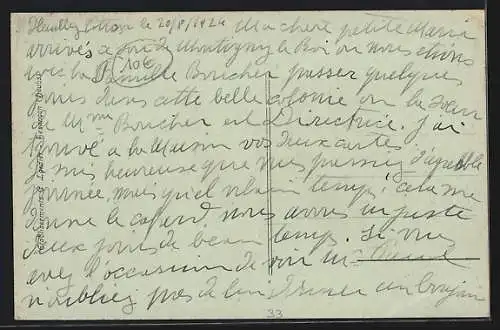 le 20/8/1924 Ma chère petite Marie
arrivés à Montigny le Roi ou nous étions
avec la famille Boucher passer quelques
jours dans cette belle colonie ou la sœur
à Mme Boucher est Directrice. J'ai
trouvé à la maison vos deux cartes.
suis heureuse que vous passiez d'agréable
journée, mais quel vilain temps, cela me
donne le cafard, nous avons eu juste
deux jours de beau temps. Si vous
avez l'occasion de voir
n'oubliez pas de lui donner un bonjour
106
33